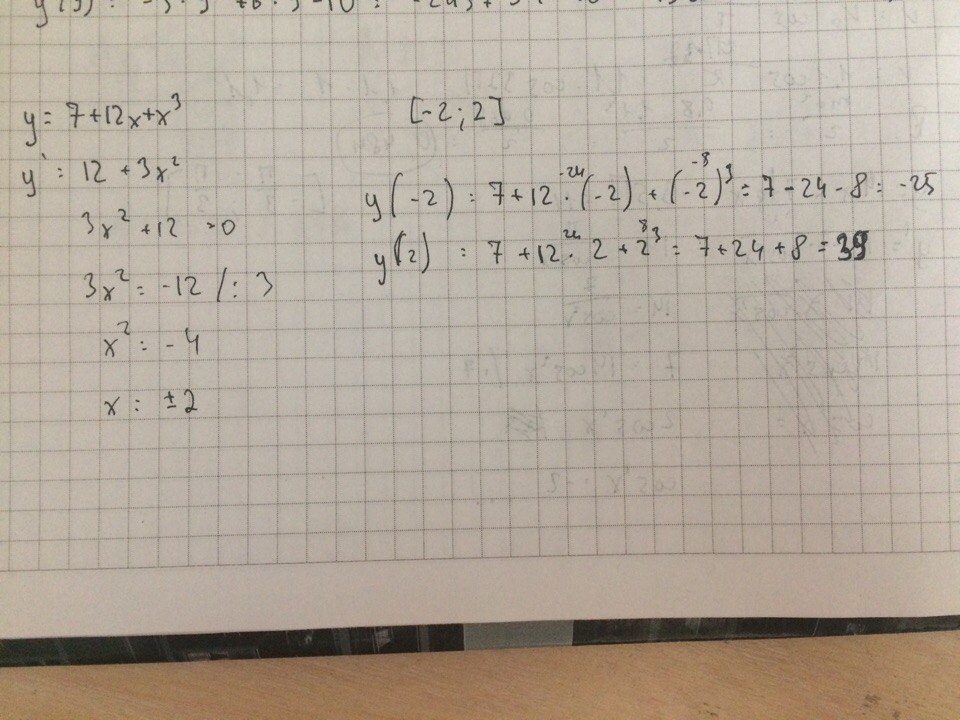 y = 7 + 12x + x³
y' = 12 + 3x²
3x² + 12 = 0
3x² = -12 / : 3
x² = -4
x = ±2
[-2; 2]
y(-2) = 7 + 12 · (-2) + (-2)³ = 7 - 24 - 8 = -25
-24 -8
y(2) = 7 + 12 · 2 + 2³ = 7 + 24 + 8 = 39
24 8